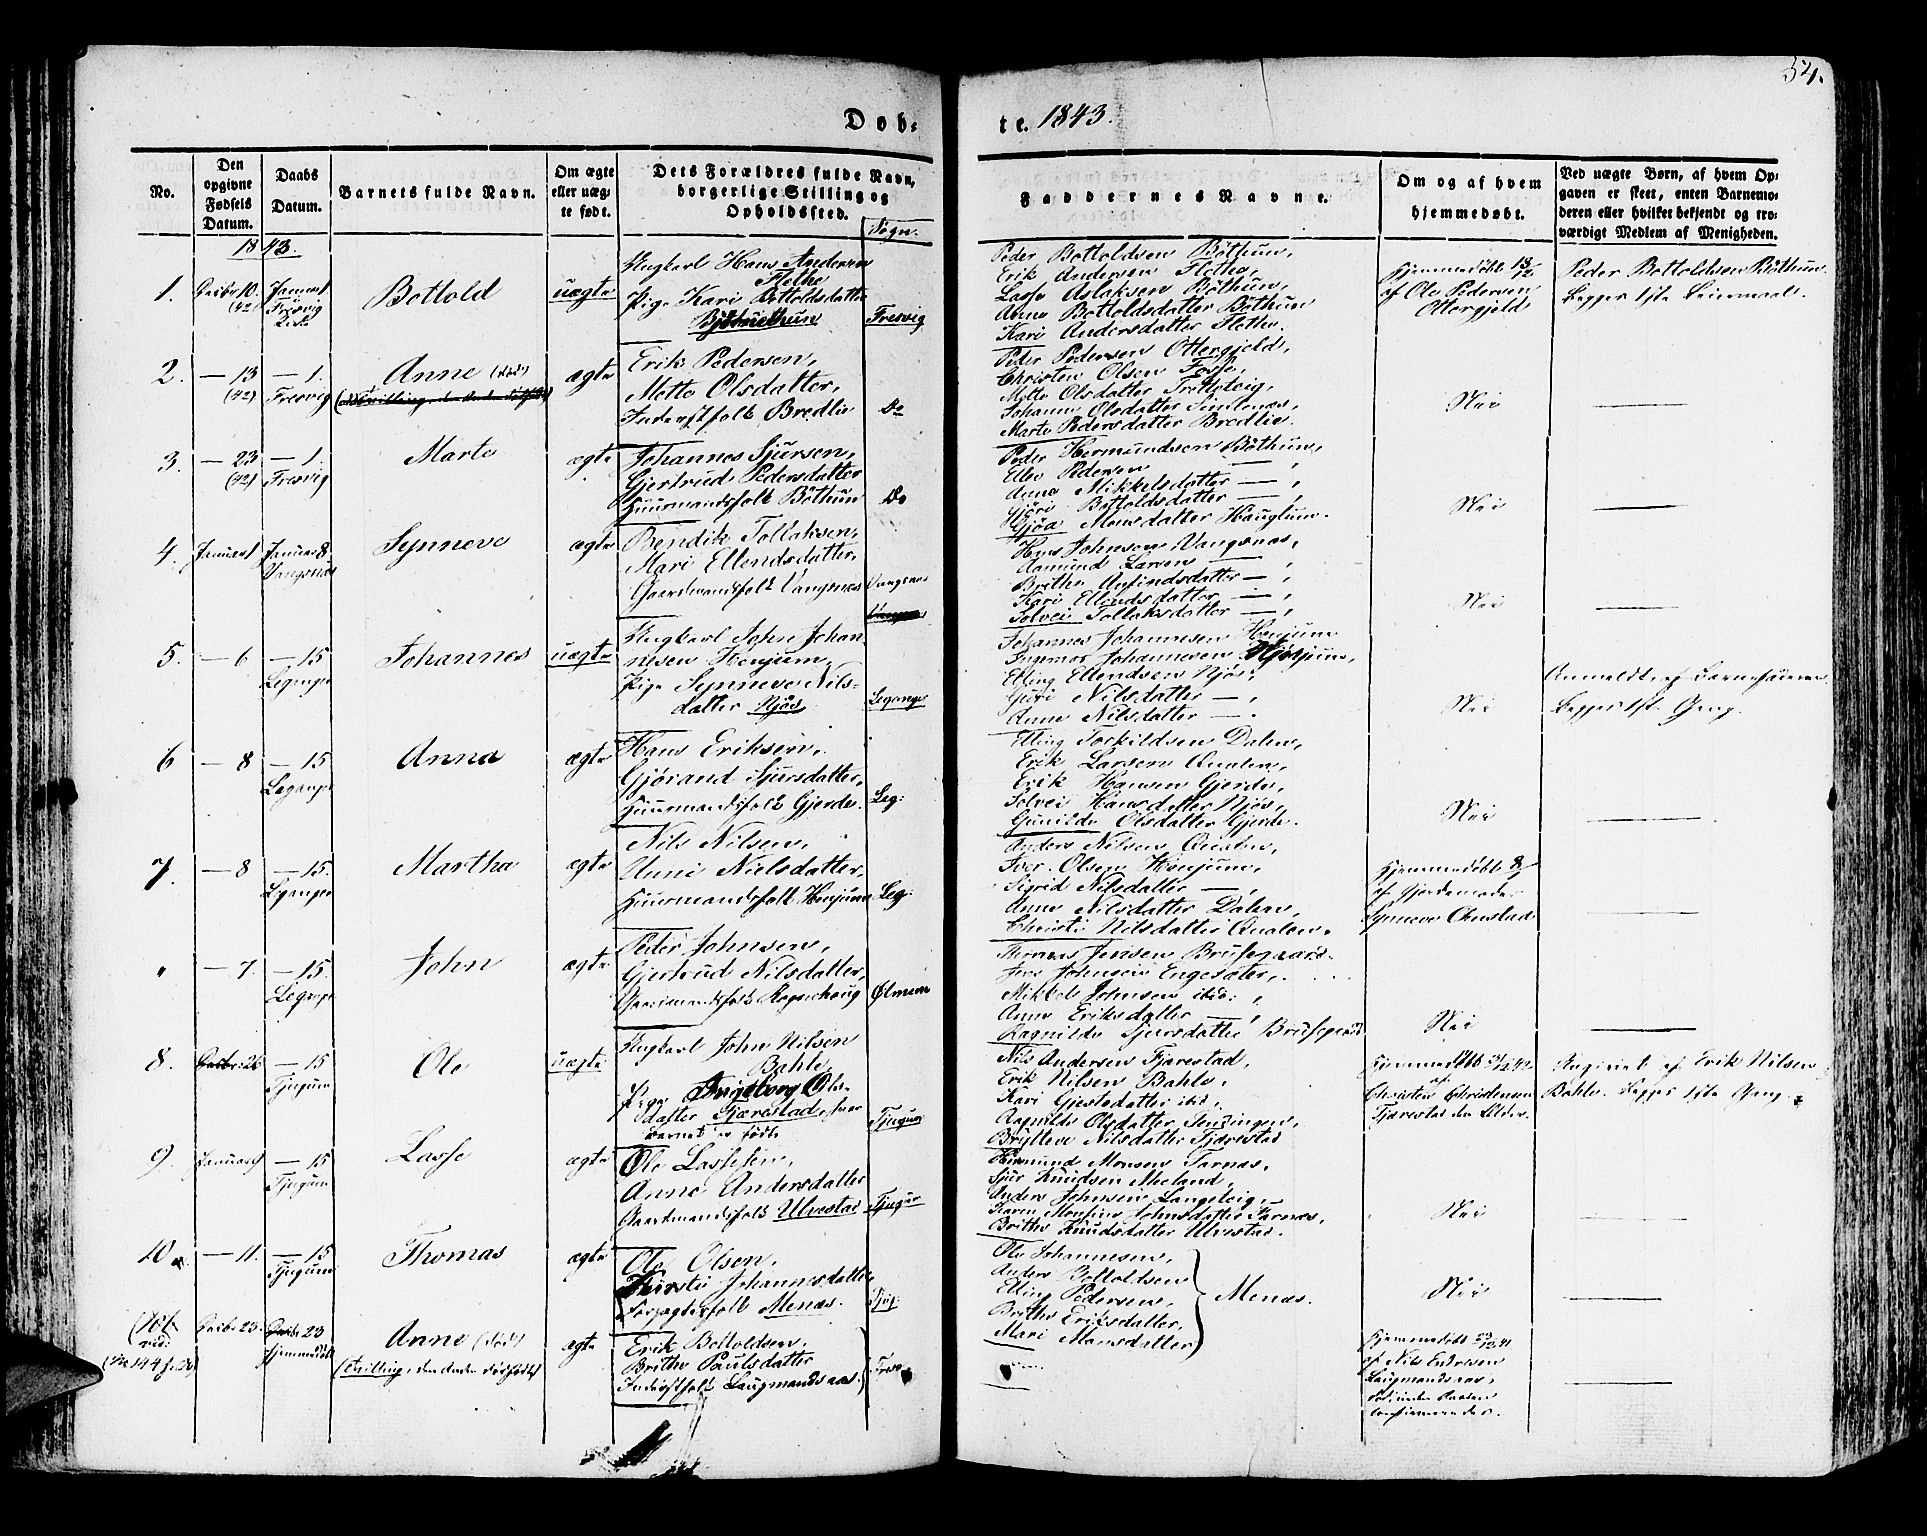 54.
Døb-
te. 1843.
No.
Den opgivne Fødsels Datum.
Daabs Datum.
Barnets fulde Navn.
Om ægte eller uægte født.
Dets Forældres fulde Navn, borgerlige Stilling og Opholdssted.
Sogn.
Faddernes Navne.
Om og af hvem hjemmedøbt.
Ved uægte Børn, af hvem Opgaven er skeet, enten Barnemoderen eller hvilket bekjendt og troværdigt Medlem af Menigheden.
1843.
1. Decbr 10. (42) Januar 1 Fresvig Kirke
Bottold
uægte
Ungkarl Hans Andersen
Flethe
Pige Kari Bottoldsdatter
Bøthun
Fresvig
Peder Bottoldsen Bøthun,
Erik Andersen Flethe,
Lasse Aslaksen Bøthun,
Anna Bottoldsdatter Bøthun
Kari Andersdatter Flethe.
Hjemmedøbt 18/12
af Ole Pedersen
Ottergjeld
Peder Bottoldsen Bøthun.
Begges 1ste Leiermaal.
2. — 13 (42) — 1. Fresvig
Anne (død)
ægte
Erik Pedersen,
Mette Olsdatter,
Inderstfolk Bredlie
Do
Peder Pedersen Ottergjeld,
Christen Olsen Fosse,
Mette Olsdatter Trolleteig,
Johanne Olsdatter Simlenæs,
Marte Pedersdatter Bredlie.
Nei
3. — 23 (42) — 1 Fresvig
Marte
ægte
Johannes Sjursen,
Gjertrud Pedersdatter
Huusmandsfolk Bøthun
Do
Peder Hermundsen Bøthun,
Ellev Pedersen — ,
Anna Mikkelsdatter — ,
Gjøri Bottoldsdatter — ,
Gjøa Monsdatter Hauglum.
Nei
4. Januar 1 Januar 8 Vangsnæs
Synneve
ægte
Bendik Tollaksen,
Mari Ellendsdatter,
Gaardmandsfolk Vangsnæs
Vangsnæs
Hans Johnsen Vangsnæs,
Aamund Larsen — ,
Brithe Anfindsdatter — ,
Kari Ellendsdatter — ,
Solvei Tollaksdatter — ,
Nei
5. — 6 — 15 Leganger
Johannes
uægte
Ungkarl John Johan
nesen Henjum,
Pige Synneve Nils-
datter Njøs
Leganger
Johannes Johannesen Henjum
Ingemor Johannesen
Elling Ellendsen Njøs,
Guri Nilsdatter — ,
Anne Nilsdatter — .
Nei
Anmeldt af Barnefaderen
Begges 1ste Gang.
6 — 8 — 15 Leganger
Anna
ægte
Hans Eriksen,
Gjørand Sjursdatter,
Huusmandsfolk Gjerde.
Leg:
Elling Torkildsen Dalen,
Erik Larsen Qualen,
Erik Hansen Gjerde,
Solvei Hansdatter Njøs,
Gunilde Olsdatter Gjerde.
Nei
7. — 8 — 15. Leganger
Martha
ægte
Nils Nilsen,
Unni Nielsdatter,
Huusmandsfolk Henjum
Leg:
Anders Nilsen Qualen,
Iver Olsen Henjum,
Sigrid Nilsdatter — ,
Anne Nilsdatter Dalen,
Christi Nilsdatter Qualen.
Hjemmedøbt 8/1
af Gjordemoder
Synneve Amstad
" — 7. — 15. Leganger
John
ægte
Peder Johnsen,
Gjertrud Nilsdatter,
Gaardmandsfolk Ragnehaug
Ølmem
Thomas Jensen Brusegaard.
Jens Johnsen Engesæter,
Mikkel Johnsen ibid: ,
Anne Eriksdatter — ,
Ragnilde Sjursdatter Brusegaard
Nei
8. Decbr: 26 — 15 Tjugum
Ole
uægte
Ungkarl John Nilsen
Bahle,
Pige Ingeborg Ols-
datter Fjærestad, hvor
Barnet er født
Tjugum
Nils Andersen Fjærestad,
Erik Nilsen Bahle,
Kari Gjestsdatter ibid:
Ragnilde Olsdatter Tenningen,
Brytteve Nilsdatter Fjærestad
Hjemmedøbt 31/12 42
af
Christen Christensen
Fjærestad den Eldre.
Angivet af Erik Nilsen
Bahle. Begges 1ste Gang.
9. Januar 9 — 15 Tjugum
Lasse
ægte
Ole Lassesen,
Anne Andersdatter
Gaardmandsfolk Ulvestad
Tjugum
Hermund Monsen Farnæs,
Sjur Knudsen Meeland,
Anders Johnsen Langeteig,
Karen Monsine Johnsdatter Farnæs,
Brithe Knudsdatter Ulvestad.
Nei
10. — 11. — 15 Tjugum
Thomas
ægte
Ole Olsen,
Kirsti Johannesdatter,
Forpagterfolk Menæs.
Tjug:
Ole Johannesen,
Anders Bottoldsen
Elling Pedersen,
Brithe Eriksdatter,
Mari Monsdatter
Menæs.
Nei
Decbr 23. Decbr 23 hjemmedøbt
Anne (død)
(Tvilling, den Anden dødfødt)
ægte
Erik Bottoldsen,
Brithe Paulsdatter
Inderstfolk Laugmandsaas.
Fres
Hjemmedøbt 23/12 41
af Nils Endresen
Laugmandsaas,